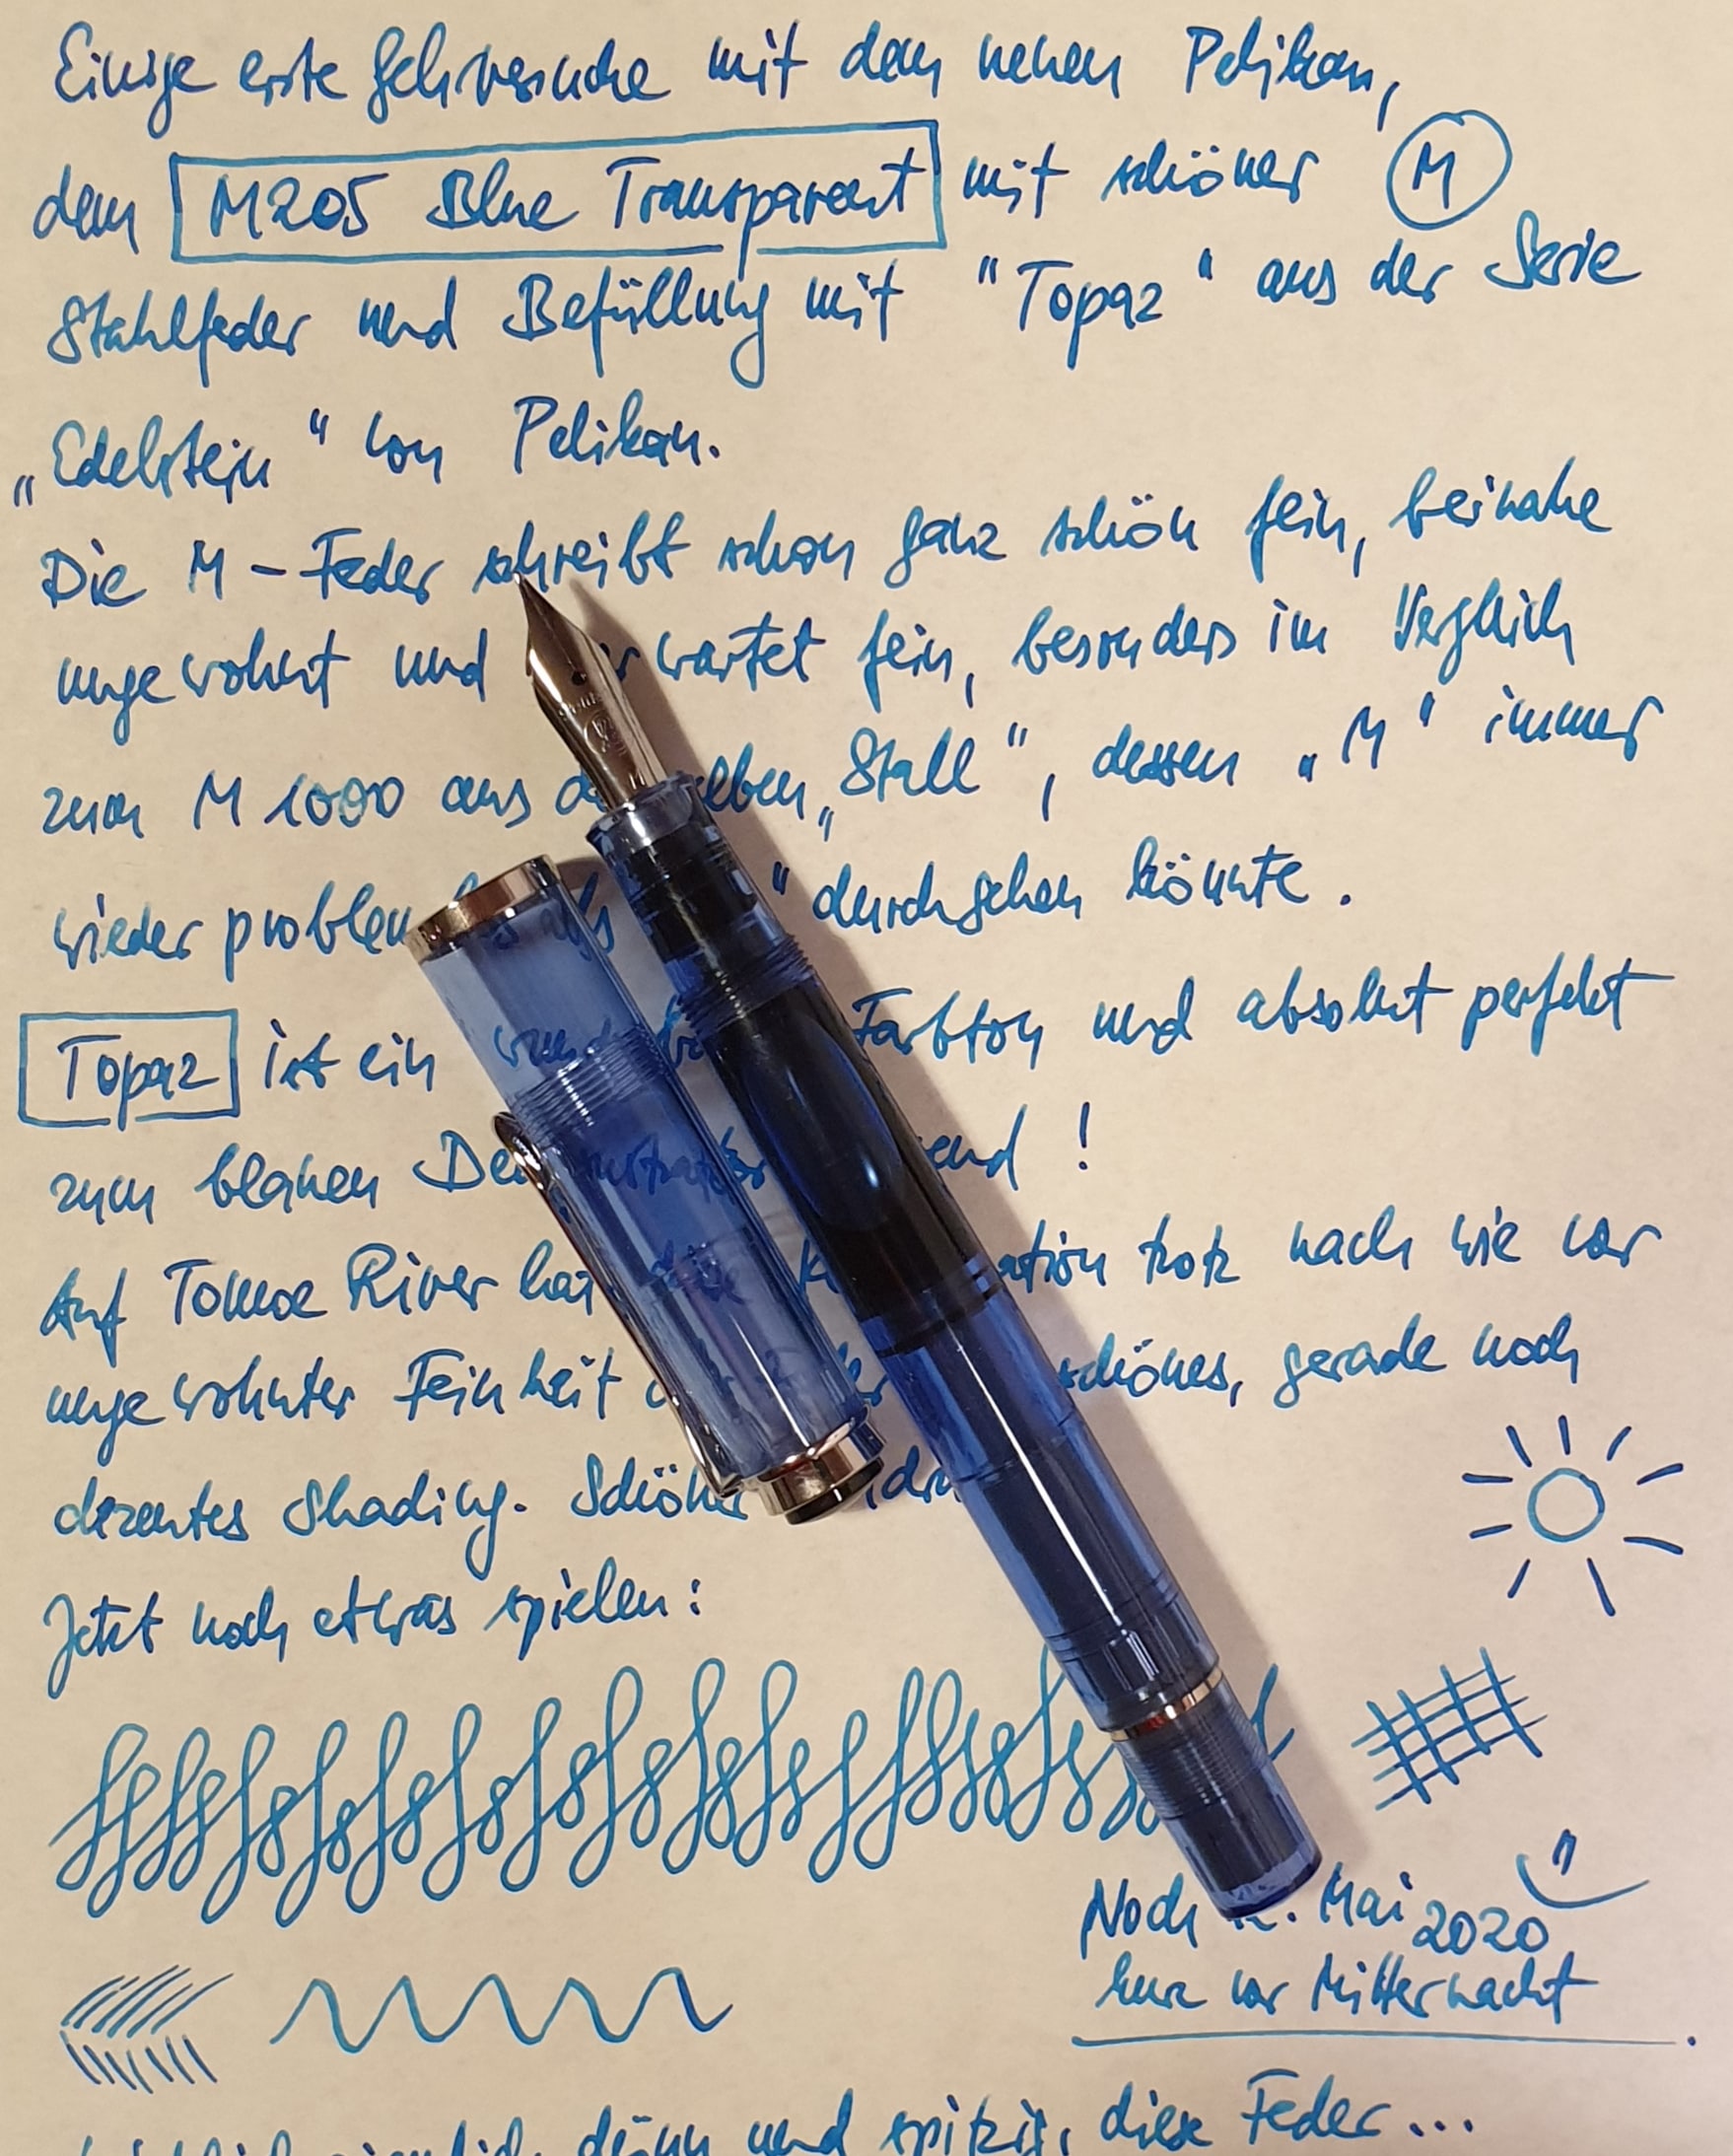 Einige erste Gehversuche mit dem neuen Pelikan,
dem M205 Blue Transparent mit schöner M
Stahlfeder und Befüllung mit "Topaz" aus der Serie
„Edelstein" von Pelikan.
Die M-Feder schreibt schon ganz schön fein, beinahe
ungewohnt und wartet fein, besonders im Vergleich
zum M1000 aus elben „Stall", dessen „M" immer
wieder problem als " durchgehen könnte.
Topaz ist ein Farbton und absolut perfekt
zum blauen Demonstrator end!
Auf Tomoe River hat diese ation trotz nach wie vor
ungewohnter Feinheit schönes, gerade noch
dezentes Shading. Schöner
Jetzt noch etwas spielen:
Noch 12. Mai 2020
kurz vor Mitternacht
dünn und spitzig, diese Feder...